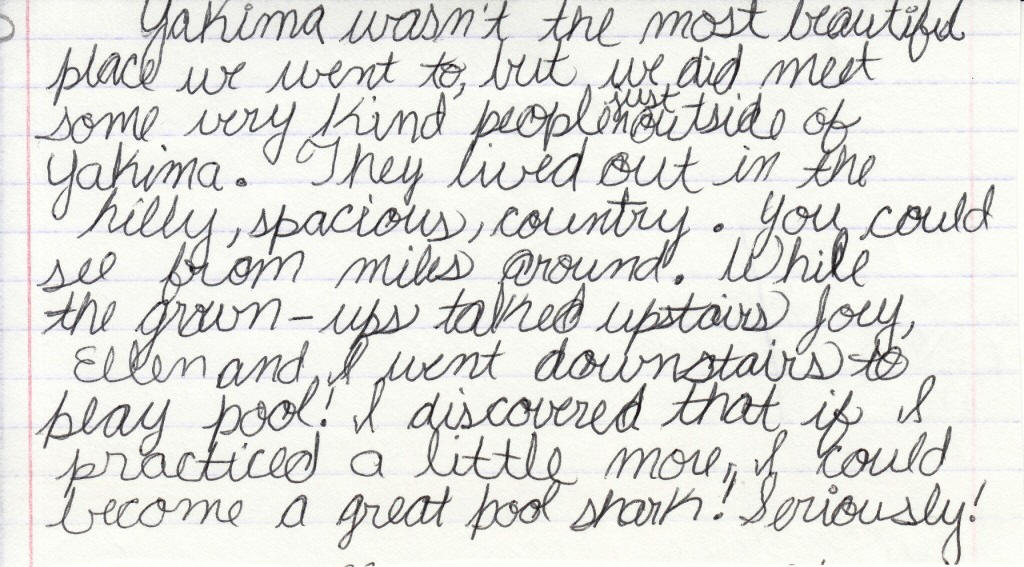 Yakima wasn't the most beautiful
place we went to, but we did meet
some very kind people just outside of
Yakima. They lived out in the
hilly, spacious, country. You could
see from miles around. While
the grown-ups talked upstairs Joey,
Ellen and I went downstairs to
play pool! I discovered that if I
practiced a little more, I could
become a great pool shark! Seriously!